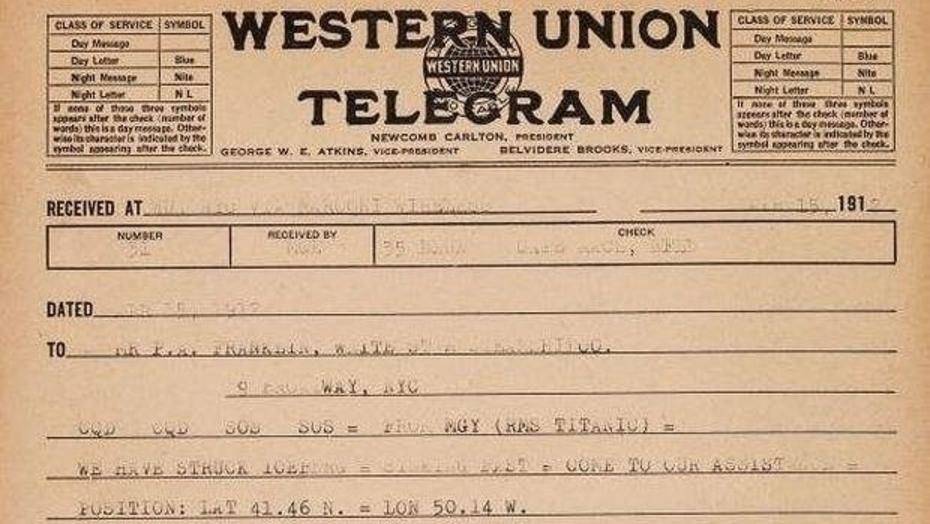 CLASS OF SERVICE SYMBOL
Day Message
Day Letter Blue
Night Message Nite
Night Letter N L
If none of these three symbols
appears after the check (number of
words) this is a day message. Other-
wise its character is indicated by the
symbol appearing after the check.
WESTERN UNION
WESTERN UNION
TELEGRAM
NEWCOMB CARLTON, PRESIDENT
GEORGE W. E. ATKINS, VICE-PRESIDENT BELVIDERE BROOKS, VICE-PRESIDENT
CLASS OF SERVICE SYMBOL
Day Message
Day Letter Blue
Night Message Nite
Night Letter N L
If none of these three symbols
appears after the check (number of
words) this is a day message. Other-
wise its character is indicated by the
symbol appearing after the check.
RECEIVED AT MARCONI WIRELESS 15, 191
NUMBER RECEIVED BY CHECK
35 CAPE RACE,
DATED 15, 1912
TO MR P.A. FRANKLIN, WHITE CO.
9 BROADWAY, NYC
CQD CQD SOS SOS = FROM MGY (RMS TITANIC) =
WE HAVE STRUCK ICEBERG = SINKING FAST = COME TO OUR ASSISTANCE =
POSITION: LAT 41.46 N. = LON 50.14 W.